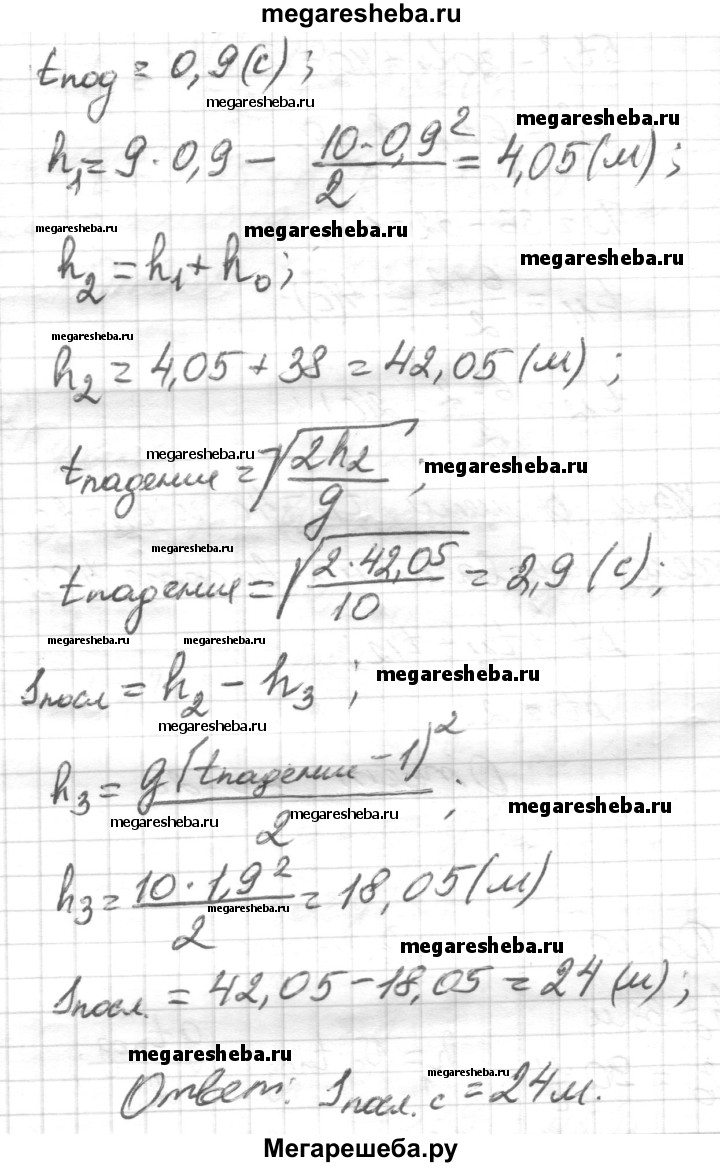 megaresheba.ru
tпод = 0,9 (с);
megaresheba.ru
megaresheba.ru
h₁ = 9 · 0,9 − (10 · 0,9²)/2 = 4,05 (м);
megaresheba.ru
megaresheba.ru
h₂ = h₁ + h₀;
megaresheba.ru
megaresheba.ru
h₂ = 4,05 + 38 = 42,05 (м);
megaresheba.ru
megaresheba.ru
tпадения = √(2h₂/g);
megaresheba.ru
tпадения = √(2·42,05/10) = 2,9 (с);
megaresheba.ru
megaresheba.ru
Sпосл = h₂ − h₃;
megaresheba.ru
megaresheba.ru
h₃ = g(tпадении − 1)²/2;
megaresheba.ru
megaresheba.ru
megaresheba.ru
h₃ = 10 · 1,9²/2 = 18,05 (м)
megaresheba.ru
megaresheba.ru
Sпосл. = 42,05 − 18,05 = 24 (м);
megaresheba.ru
megaresheba.ru
Ответ: Sпосл. с = 24 м.
Мегарешеба.ру